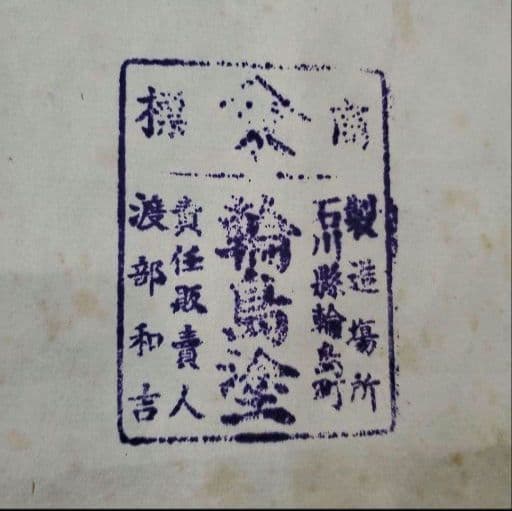 商標
製造塲所
石川縣輪島町
輪島塗
責任販賣人
渡部和吉